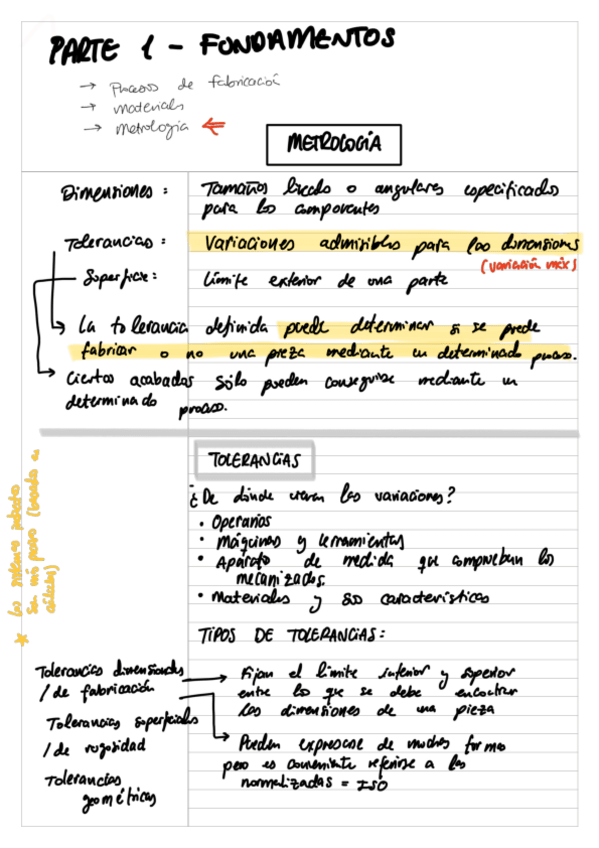 PARTE 1 - FUNDAMENTOS
→ Procesos de fabricación
→ Materiales
→ Metrología ←
METROLOGÍA
Dimensiones: Tamaños lineales o angulares especificados
para los componentes
Tolerancias: Variaciones admisibles para las dimensiones
(variación máx)
Superficie: Límite exterior de una parte
La tolerancia definida puede determinar si se puede
fabricar o no una pieza mediante un determinado proceso.
Ciertos acabados sólo pueden conseguirse mediante un
determinado proceso.
TOLERANCIAS
¿De dónde vienen las variaciones?
• Operarios
• Máquinas y herramientas
• Aparato de medida que comprueban los
mecanizados.
• Materiales y sus características
TIPOS DE TOLERANCIAS:
Tolerancias dimensionales
/ de fabricación
→ Fijan el límite inferior y superior
entre lo que se debe encontrar
las dimensiones de una pieza
→ Pueden expresarse de muchas formas
pero es conveniente referirse a las
normalizadas = ISO
Tolerancias superficiales
/ de rugosidad
Tolerancias
geométricas